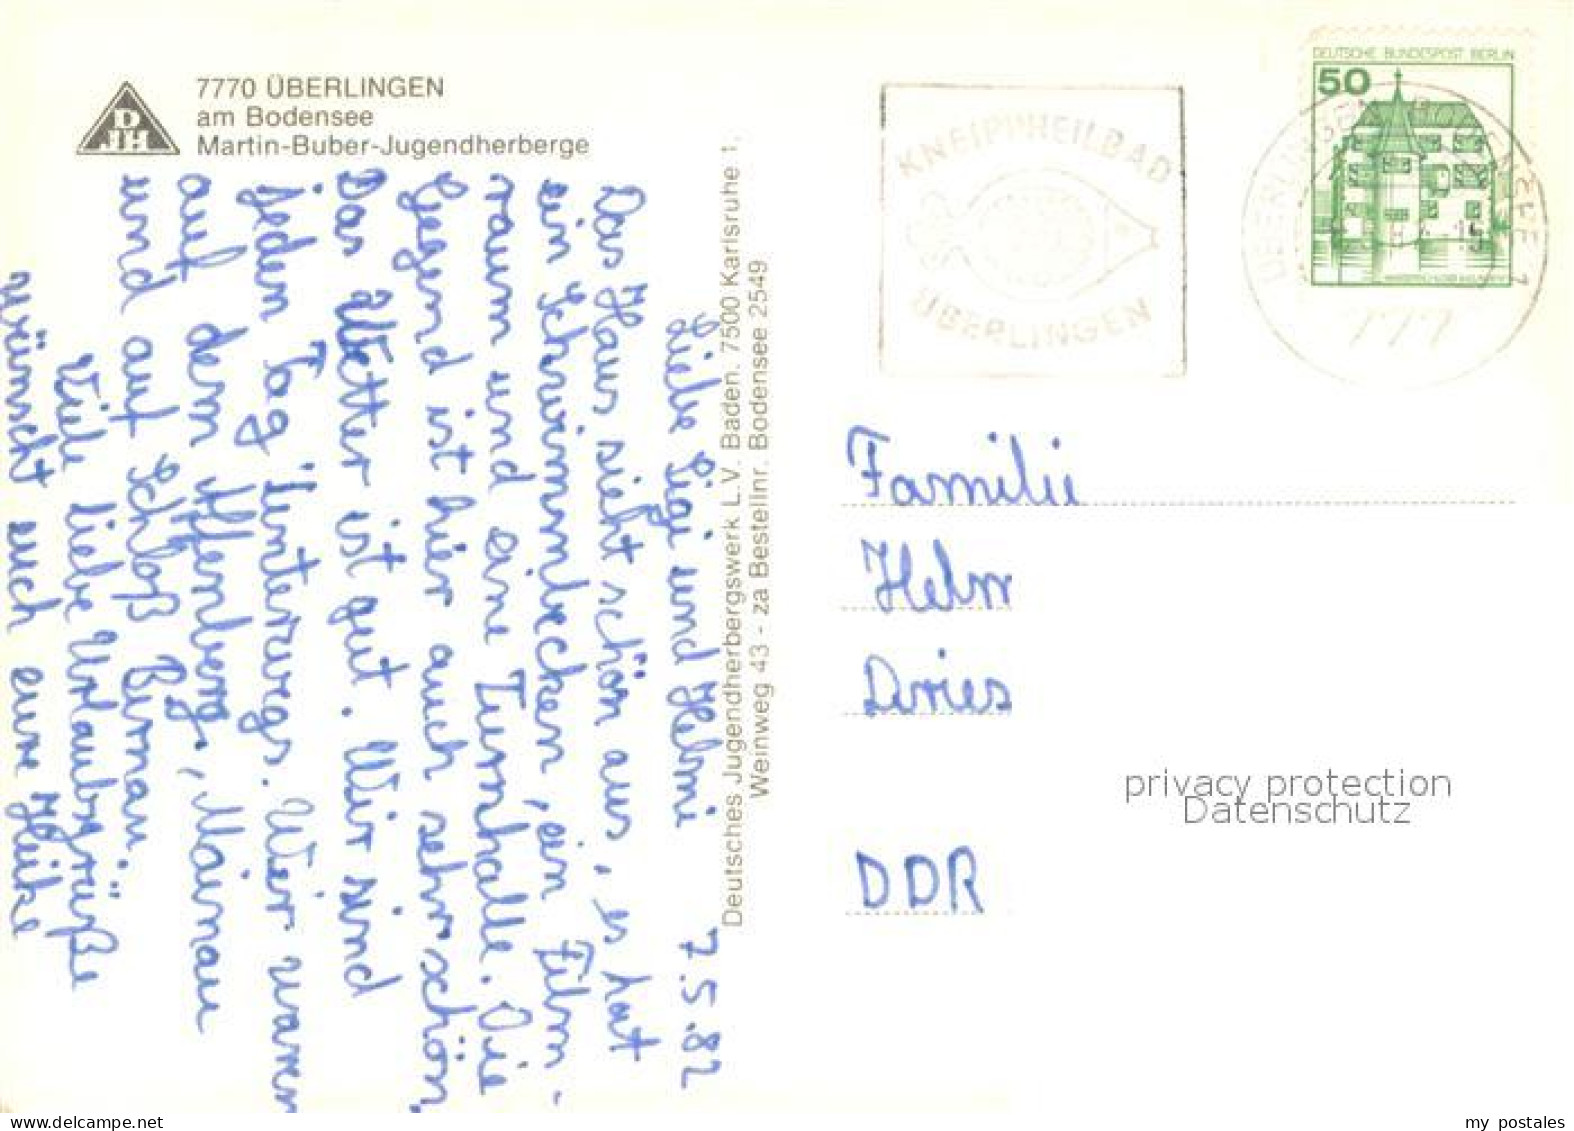 7770 ÜBERLINGEN
am Bodensee
Martin-Buber-Jugendherberge
DJH
Liebe Sigi und Helmi 7.5.82
Das Haus sieht schön aus, es hat
ein Schwimmbecken, ein Film-
raum und eine Turnhalle. Die
Gegend ist hier auch sehr schön
Das Wetter ist gut. Wir sind
jeden Tag Unterwegs. Wir waren
auf dem Affenberg, Mainau
und auf Schloß Birnau.
Viele liebe Urlaubsgrüße
wünscht euch eure Heike
Deutsches Jugendherbergswerk L.V. Baden. 7500 Karlsruhe 1,
Weinweg 43 - za Bestellnr. Bodensee 2549
KNEIPPHEILBAD
ÜBERLINGEN
DEUTSCHE BUNDESPOST BERLIN
50
ÜBERLINGEN, BODENSEE 1
777
Familie
Helm
Dries
DDR
privacy protection
Datenschutz
www.delcampe.net
my postales